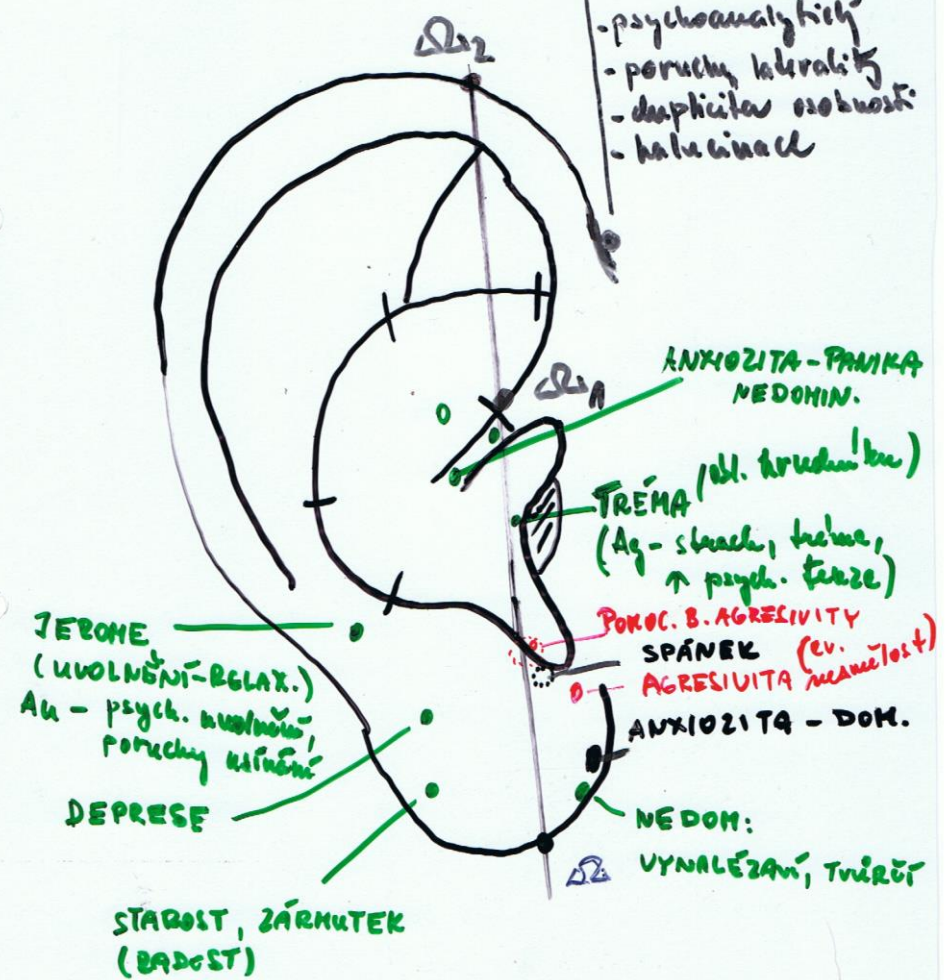 - psychoanalytický
- poruchy laterality
- duplicita osobnosti
- halucinace
Ω2
Ω1
ANXIOZITA - PANIKA
NEDOMIN.
TRÉMA (obl. hrudníku)
(Ag - strach, tréma,
↑ psych. tenze)
POMOC. B. AGRESIVITY
SPÁNEK (ev.
AGRESIVITA nesmělost)
ANXIOZITA - DOM.
NEDOM:
VYNALÉZAVÍ, TVŮRČÍ
Ω
JEROME
(UVOLNĚNÍ-RELAX.)
Au - psych. uvolnění,
poruchy usínání
DEPRESE
STAROST, ZÁRMUTEK
(RADOST)